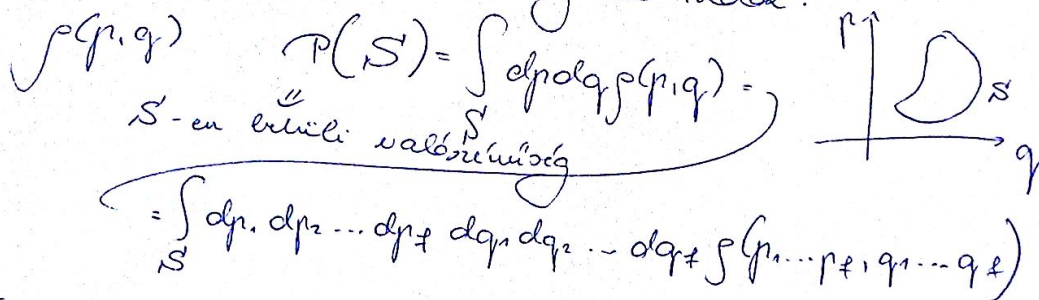 ρ(p,q) P(S) = ∫_S dp dq ρ(p,q) =
S-en belüli valószínűség
= ∫_S dp₁ dp₂ ... dp_f dq₁ dq₂ ... dq_f ρ(p₁...p_f, q₁...q_f)
p
S
q